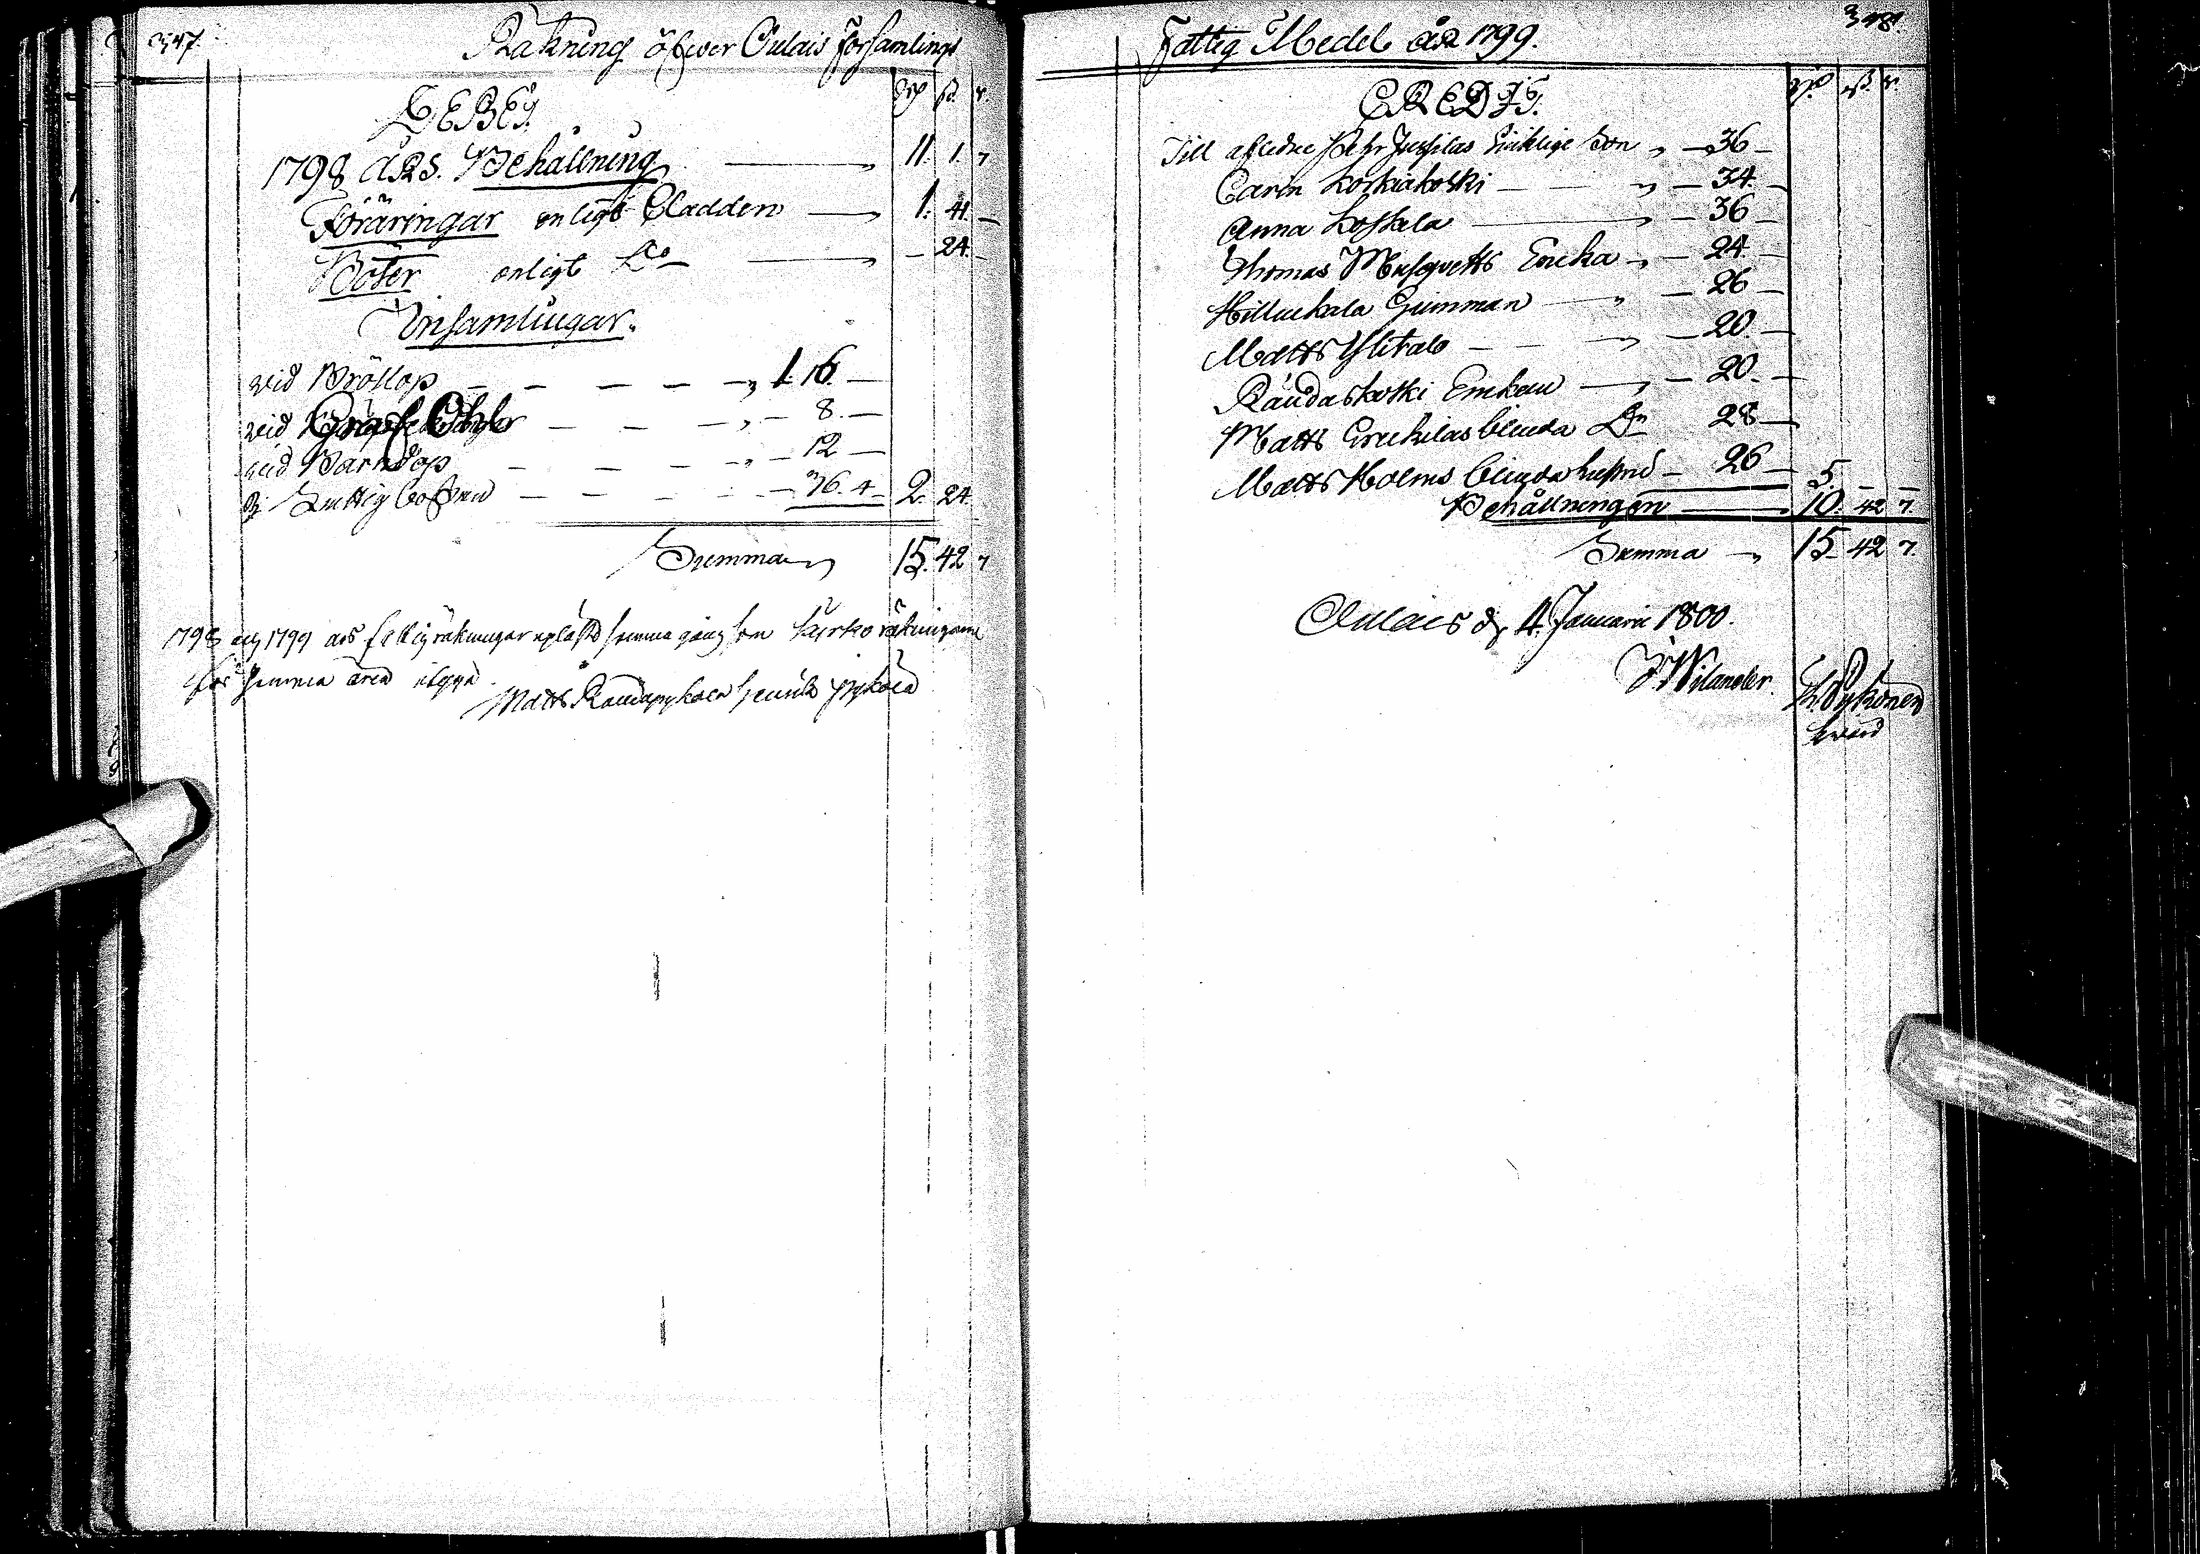 347.
Räkning öfwer Oulais Församlings
DEBET.
Rd ß. r.
1798 ÅRS. Behållning 11. 1. 7
Föräringar enligt Bladden 1. 41. —
Böter enligt Do — 24. —
Insamlingar.
vid Bröllop — — — — 1 16. —
vid Graf Öhl — — — — 8. —
vid Barndop — — — — 12 —
36. 4 — 2. 24.
Summa 15. 42 7
1798 och 1799 års fattigräkningar uplästs samma gång som kyrko räkningarne
för samma åren
Matts Henrik
348.
Fattig Medel år 1799.
CREDIT.
Rd ß. r.
Till aflidne Pehr Jussilas Son — 36 —
Carin Koskiakoski — — — 34. —
Anna Koskela — 36 —
Thomas Enka — 24 —
Hilliukala Gumman — 26 —
Matts Ylitalo — — — 20. —
Raudaskoski Enkan — 20. —
Matts blinda Dr 28 —
Matts Holms blinda hustru — 26 — 5. — —
Behållningen 10. 42 7.
Summa 15 42 7.
Oulais d. 4. Januarii 1800.
J Wilander. Pykönen